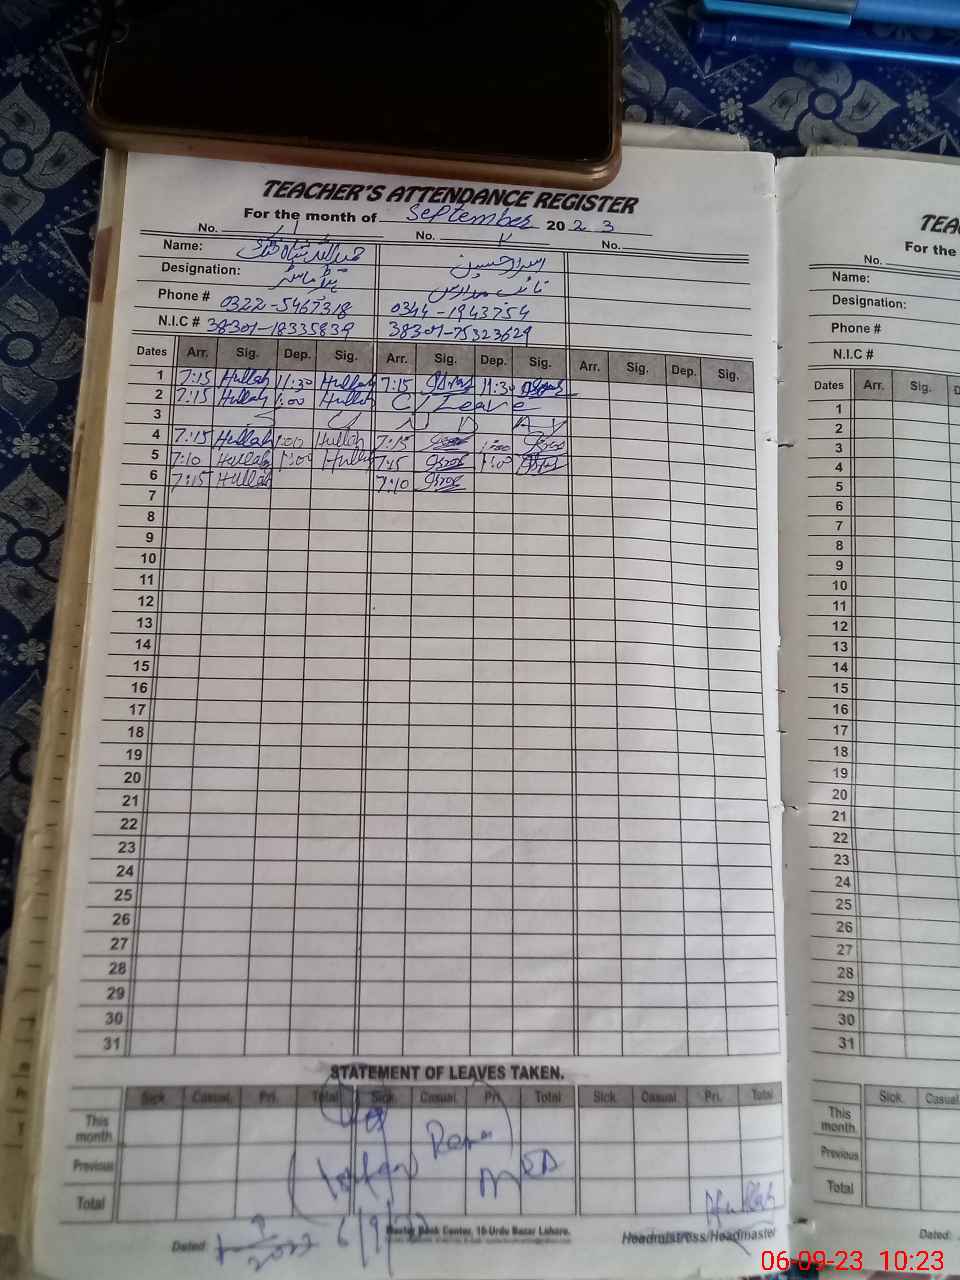 TEACHER'S ATTENDANCE REGISTER
For the month of September 20 2 3
No. ١ No. ٢ No.
Name: اسرار حسین
Designation: ہیڈ ماسٹر نائب مدرس
Phone # 0322-5467318 0344-1943754
N.I.C # 38301-18335839 38301-75323629
Dates Arr. Sig. Dep. Sig. Arr. Sig. Dep. Sig. Arr. Sig. Dep. Sig.
1 7:15 Hullah 11:30 Hullah 7:15 11:30
2 7:15 Hullah 1:00 Hullah C/Leave
3 S U N D A Y
4 7:15 Hullah 1:00 Hullah 7:15 1:00
5 7:10 Hullah 1:00 Hullah 7:15 1:00
6 7:15 Hullah 7:10
7
8
9
10
11
12
13
14
15
16
17
18
19
20
21
22
23
24
25
26
27
28
29
30
31
STATEMENT OF LEAVES TAKEN.
Sick. Casual. Pri. Total Sick. Casual. Pri. Total Sick. Casual. Pri. Total
This month
Previous
Total
MEA
Hullah
Master Book Center, 16-Urdu Bazar Lahore.
Dated: 2023 6/9/ Headmistress/Headmaster
TEA
For the
No.
Name:
Designation:
Phone #
N.I.C #
Dates Arr. Sig. D
1
2
3
4
5
6
7
8
9
10
11
12
13
14
15
16
17
18
19
20
21
22
23
24
25
26
27
28
29
30
31
Sick. Casual
This month
Previous
Total
Dated:
06-09-23 10:23